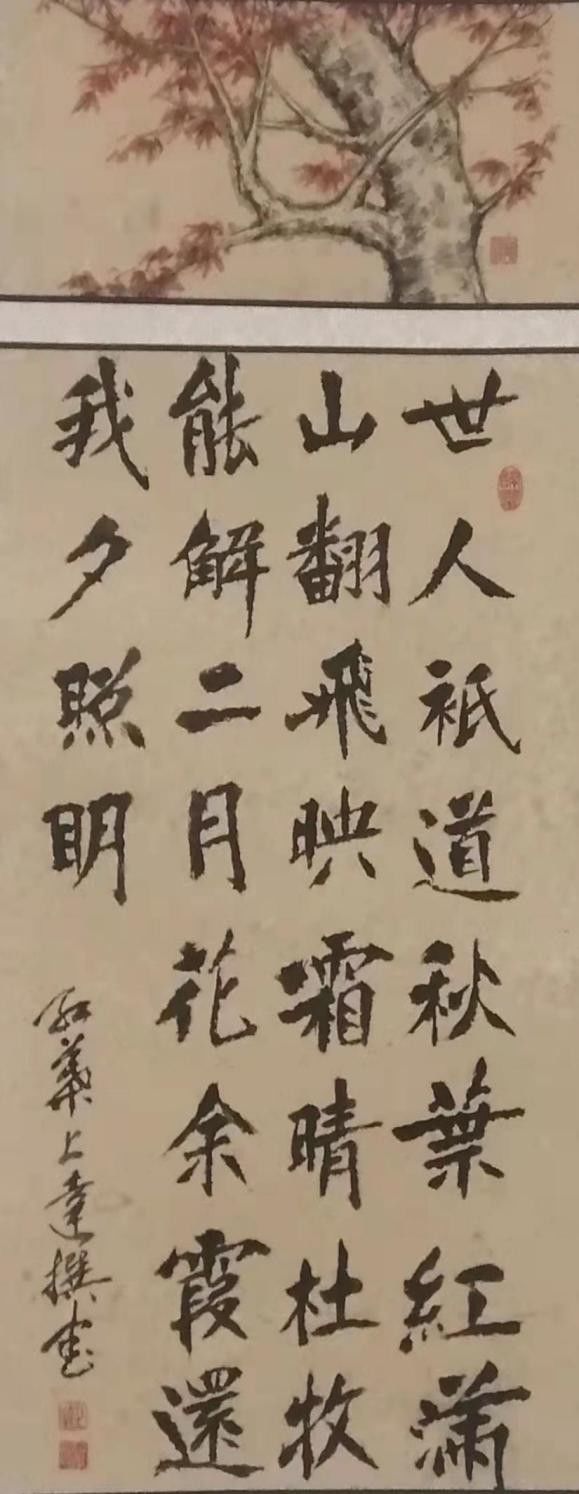 世人祇道秋葉紅瀟
山翻飛映霜晴杜牧
能解二月花余霞還
我夕照明
紅葉上達撰書